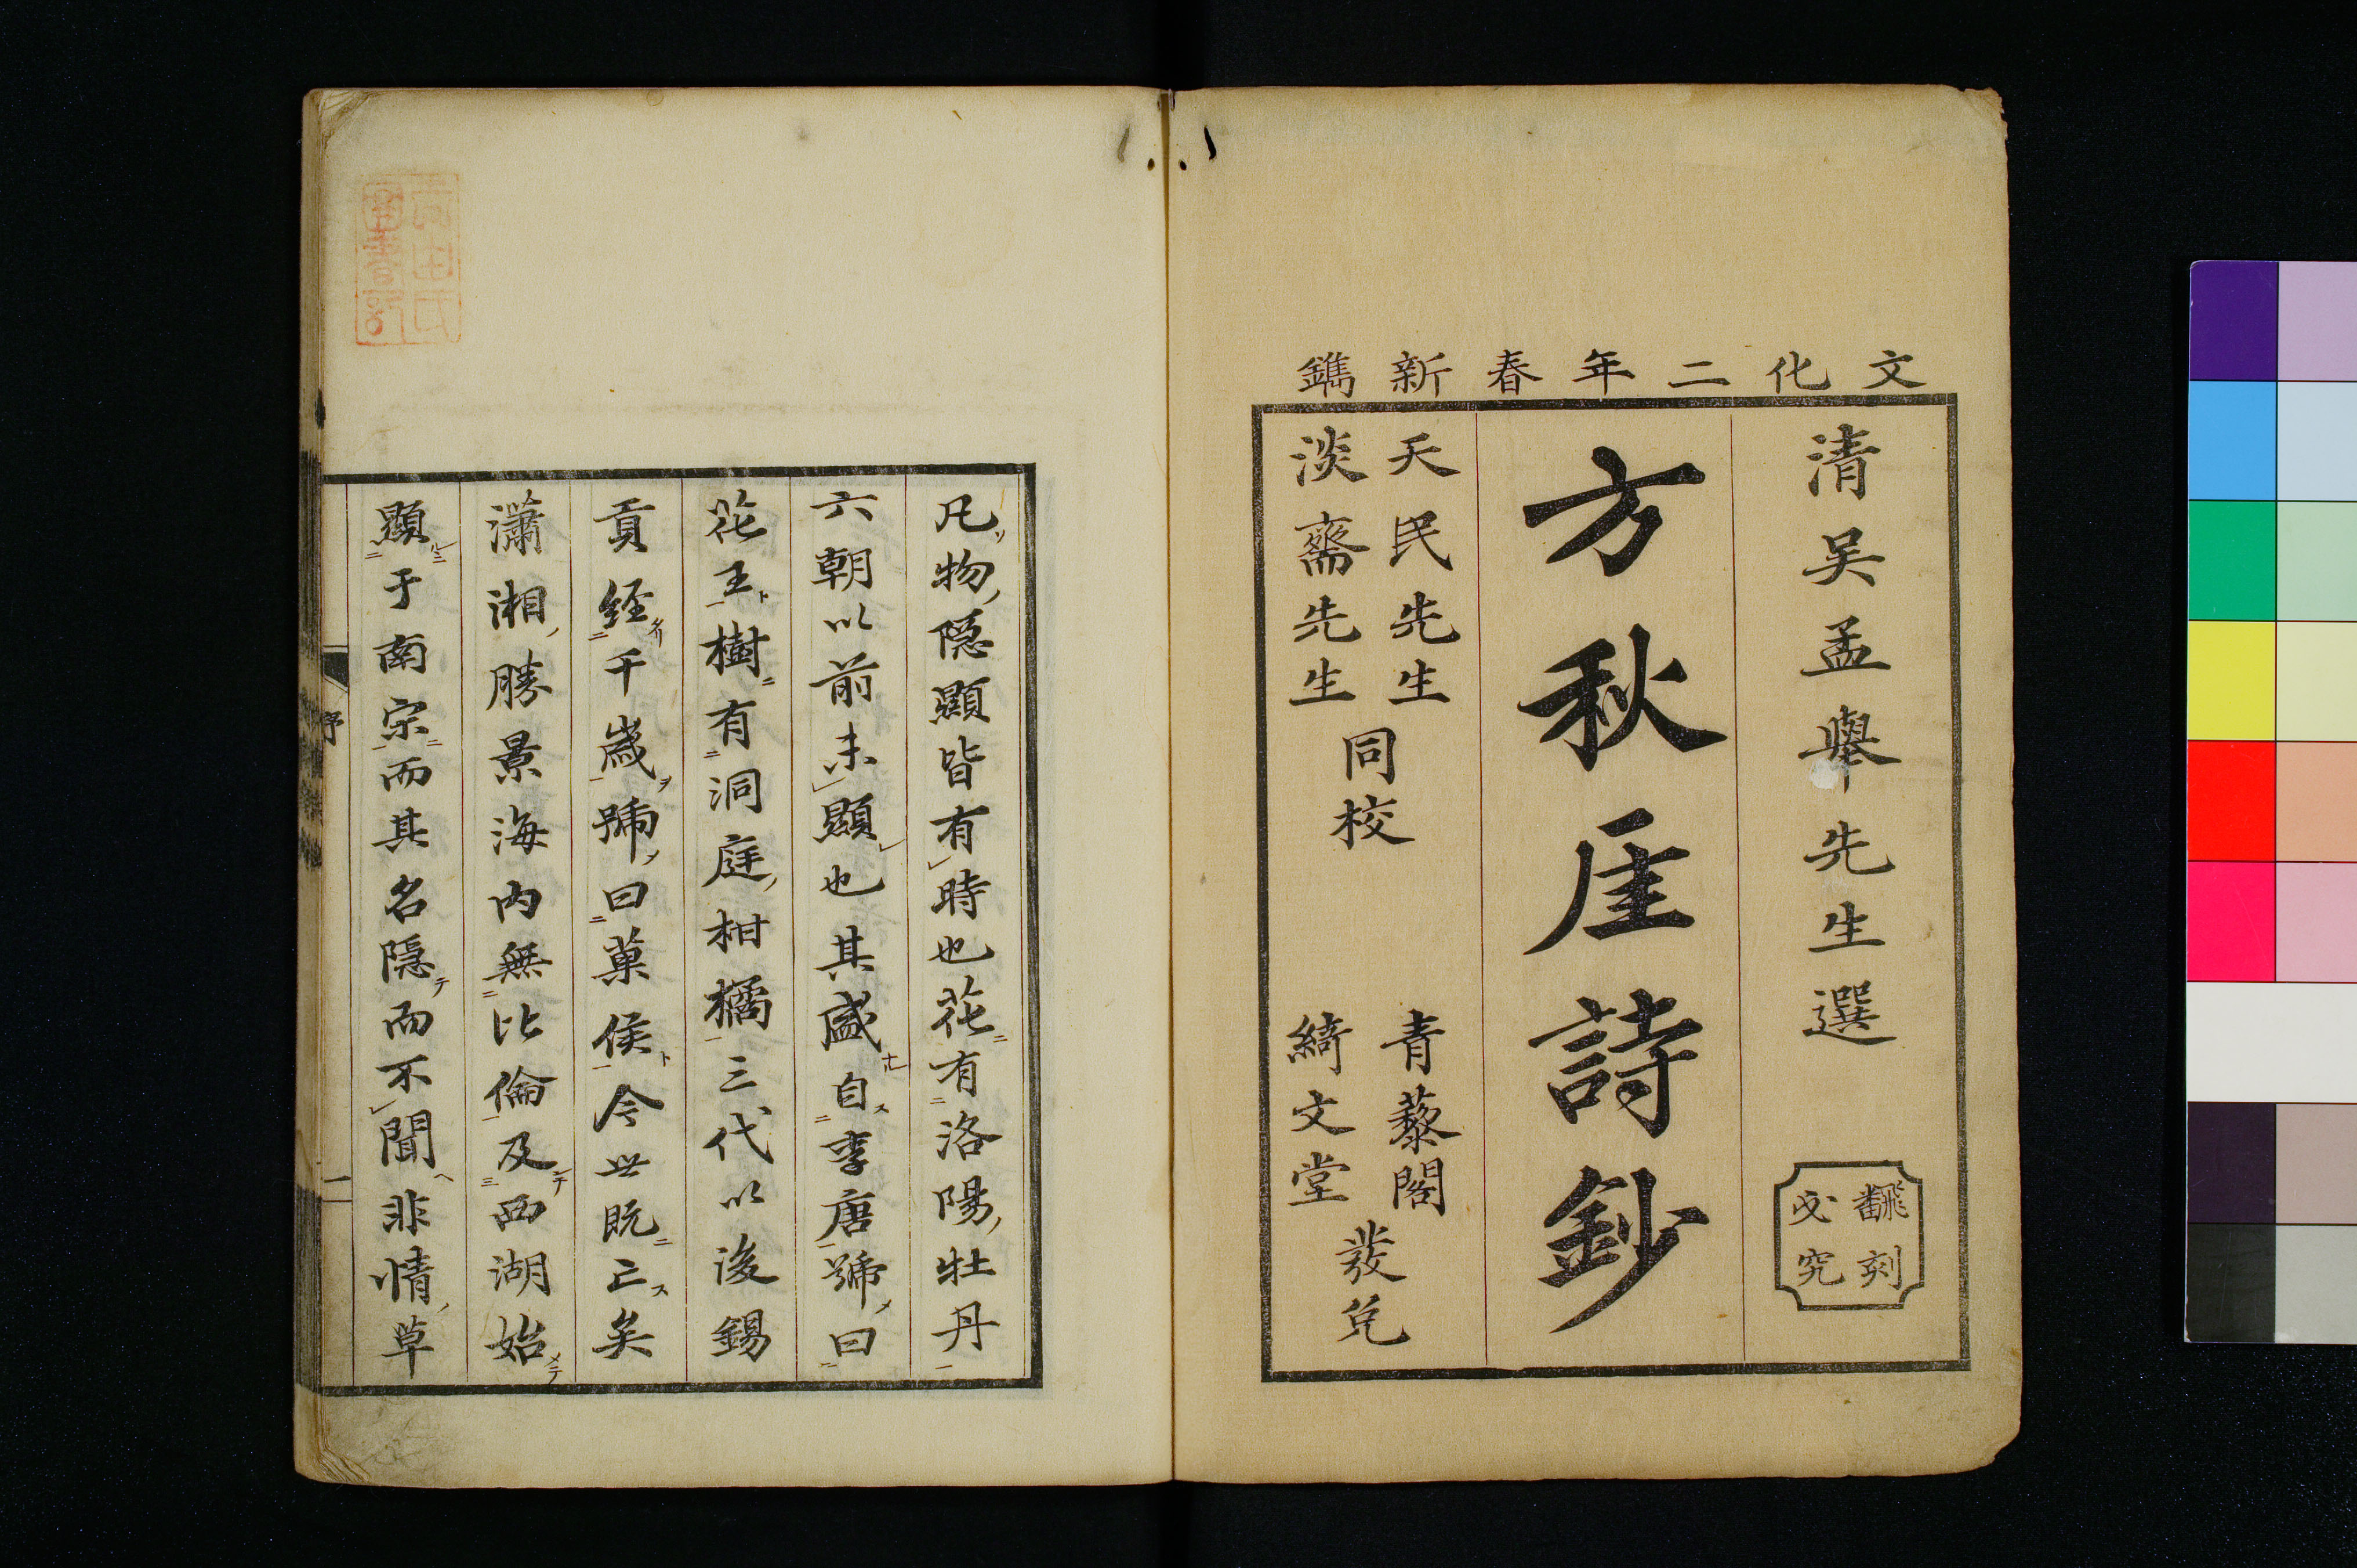 文化二年春新鐫
清吴孟舉先生選
飜刻
必究
方秋厓詩鈔
天民先生
淡齋先生
同校
青藜閣
綺文堂
發兌
凡物隠顯皆有時也花有洛陽牡丹
六朝以前未顯也其盛自李唐號曰
花王樹有洞庭柑橘三代以後錫
貢経千歲號曰菓侯今世既亡矣
瀟湘勝景海内無比倫及西湖始
顯于南宗而其名隠而不聞非情草
序
一